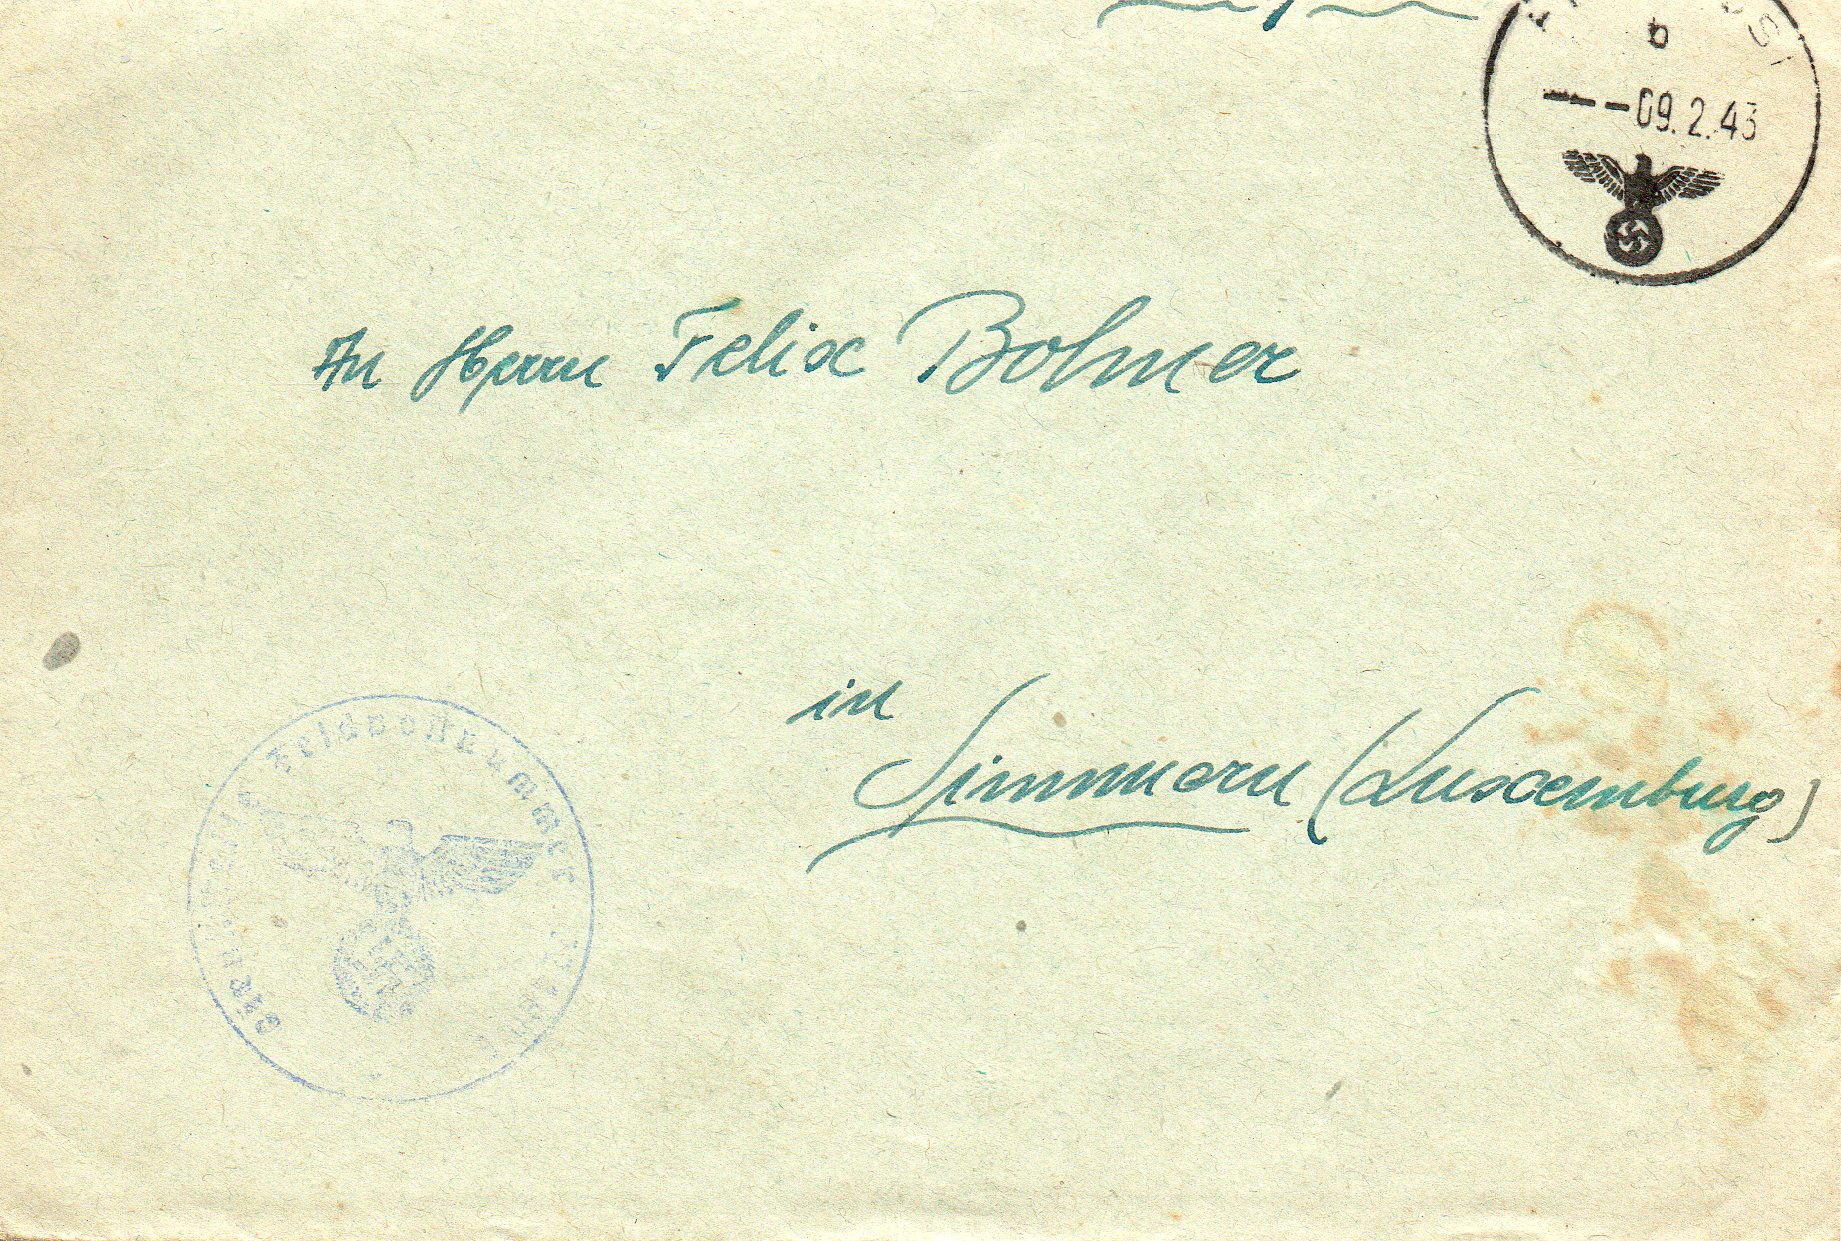 b
09.2.43
An Herrn Felix Bohmer
in
Simmern (Luxemburg)
Feldpostnummer